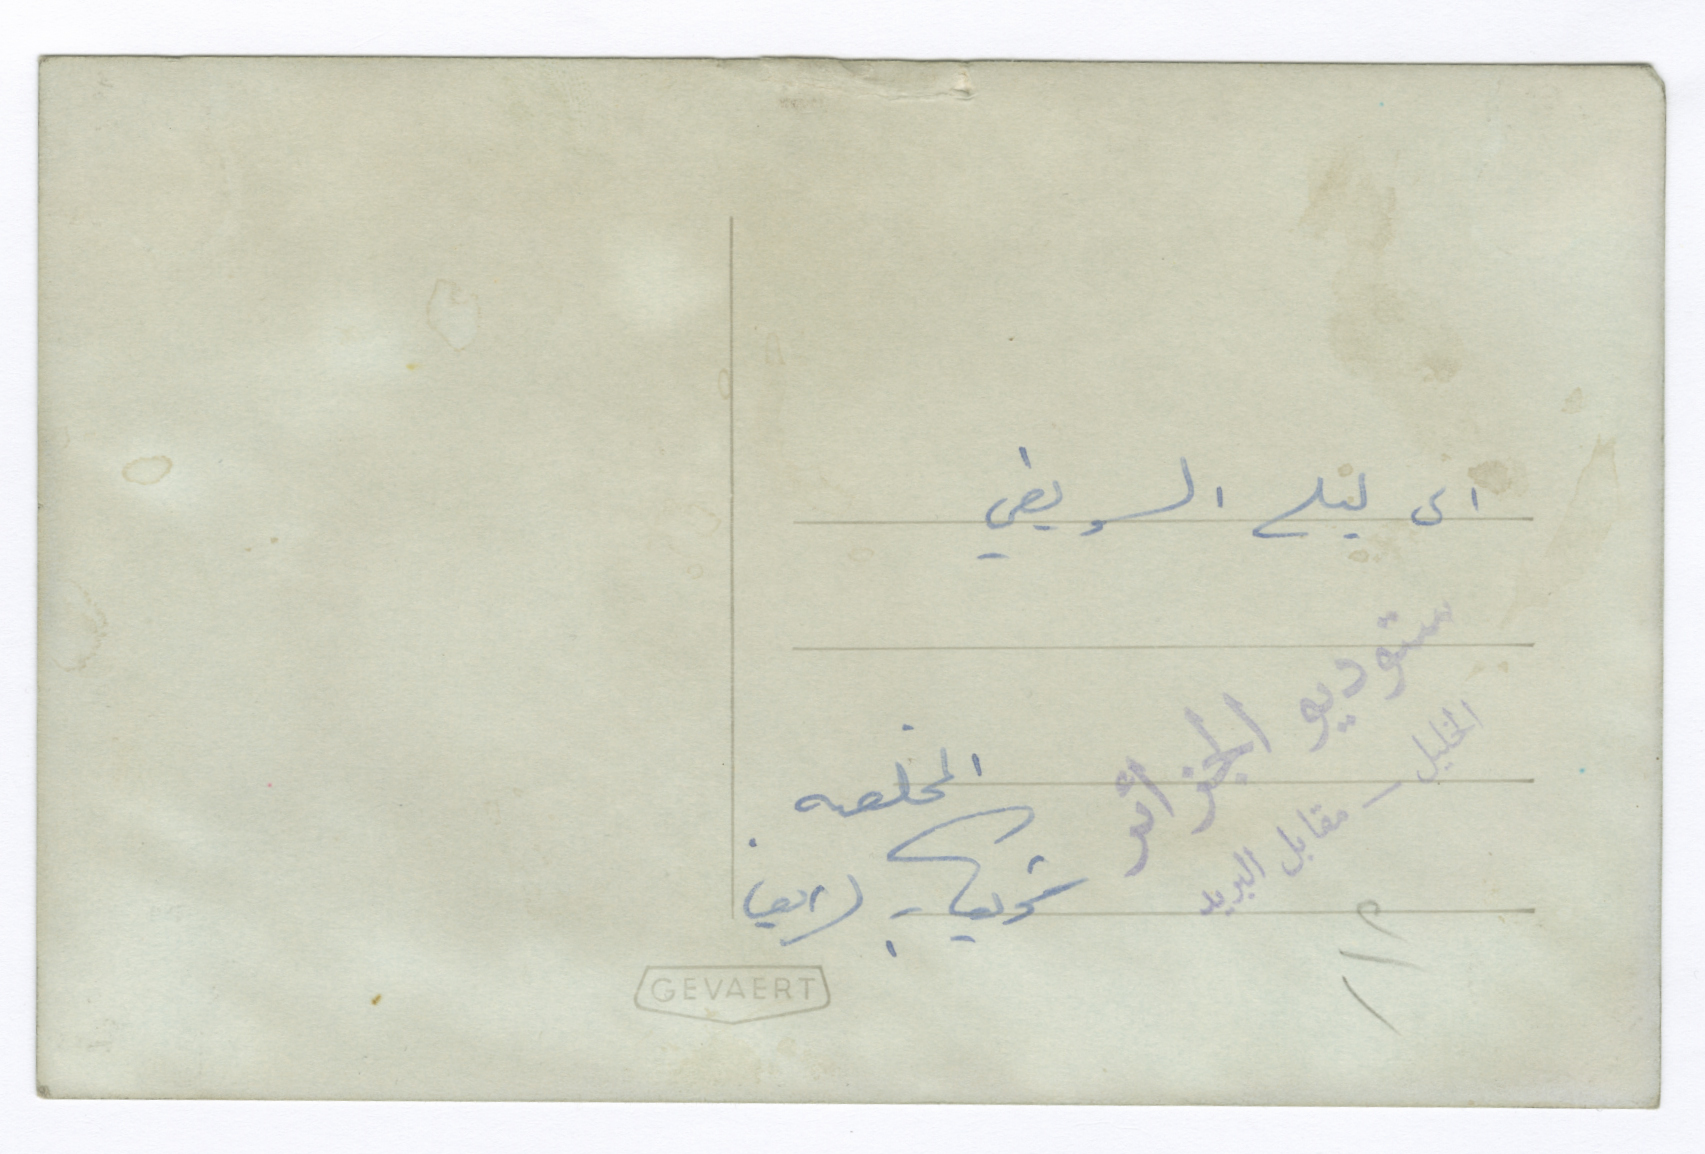 الى ليلى السويطي
ستوديو الجزائر
الخليل - مقابل البريد
المخلصه
GEVAERT